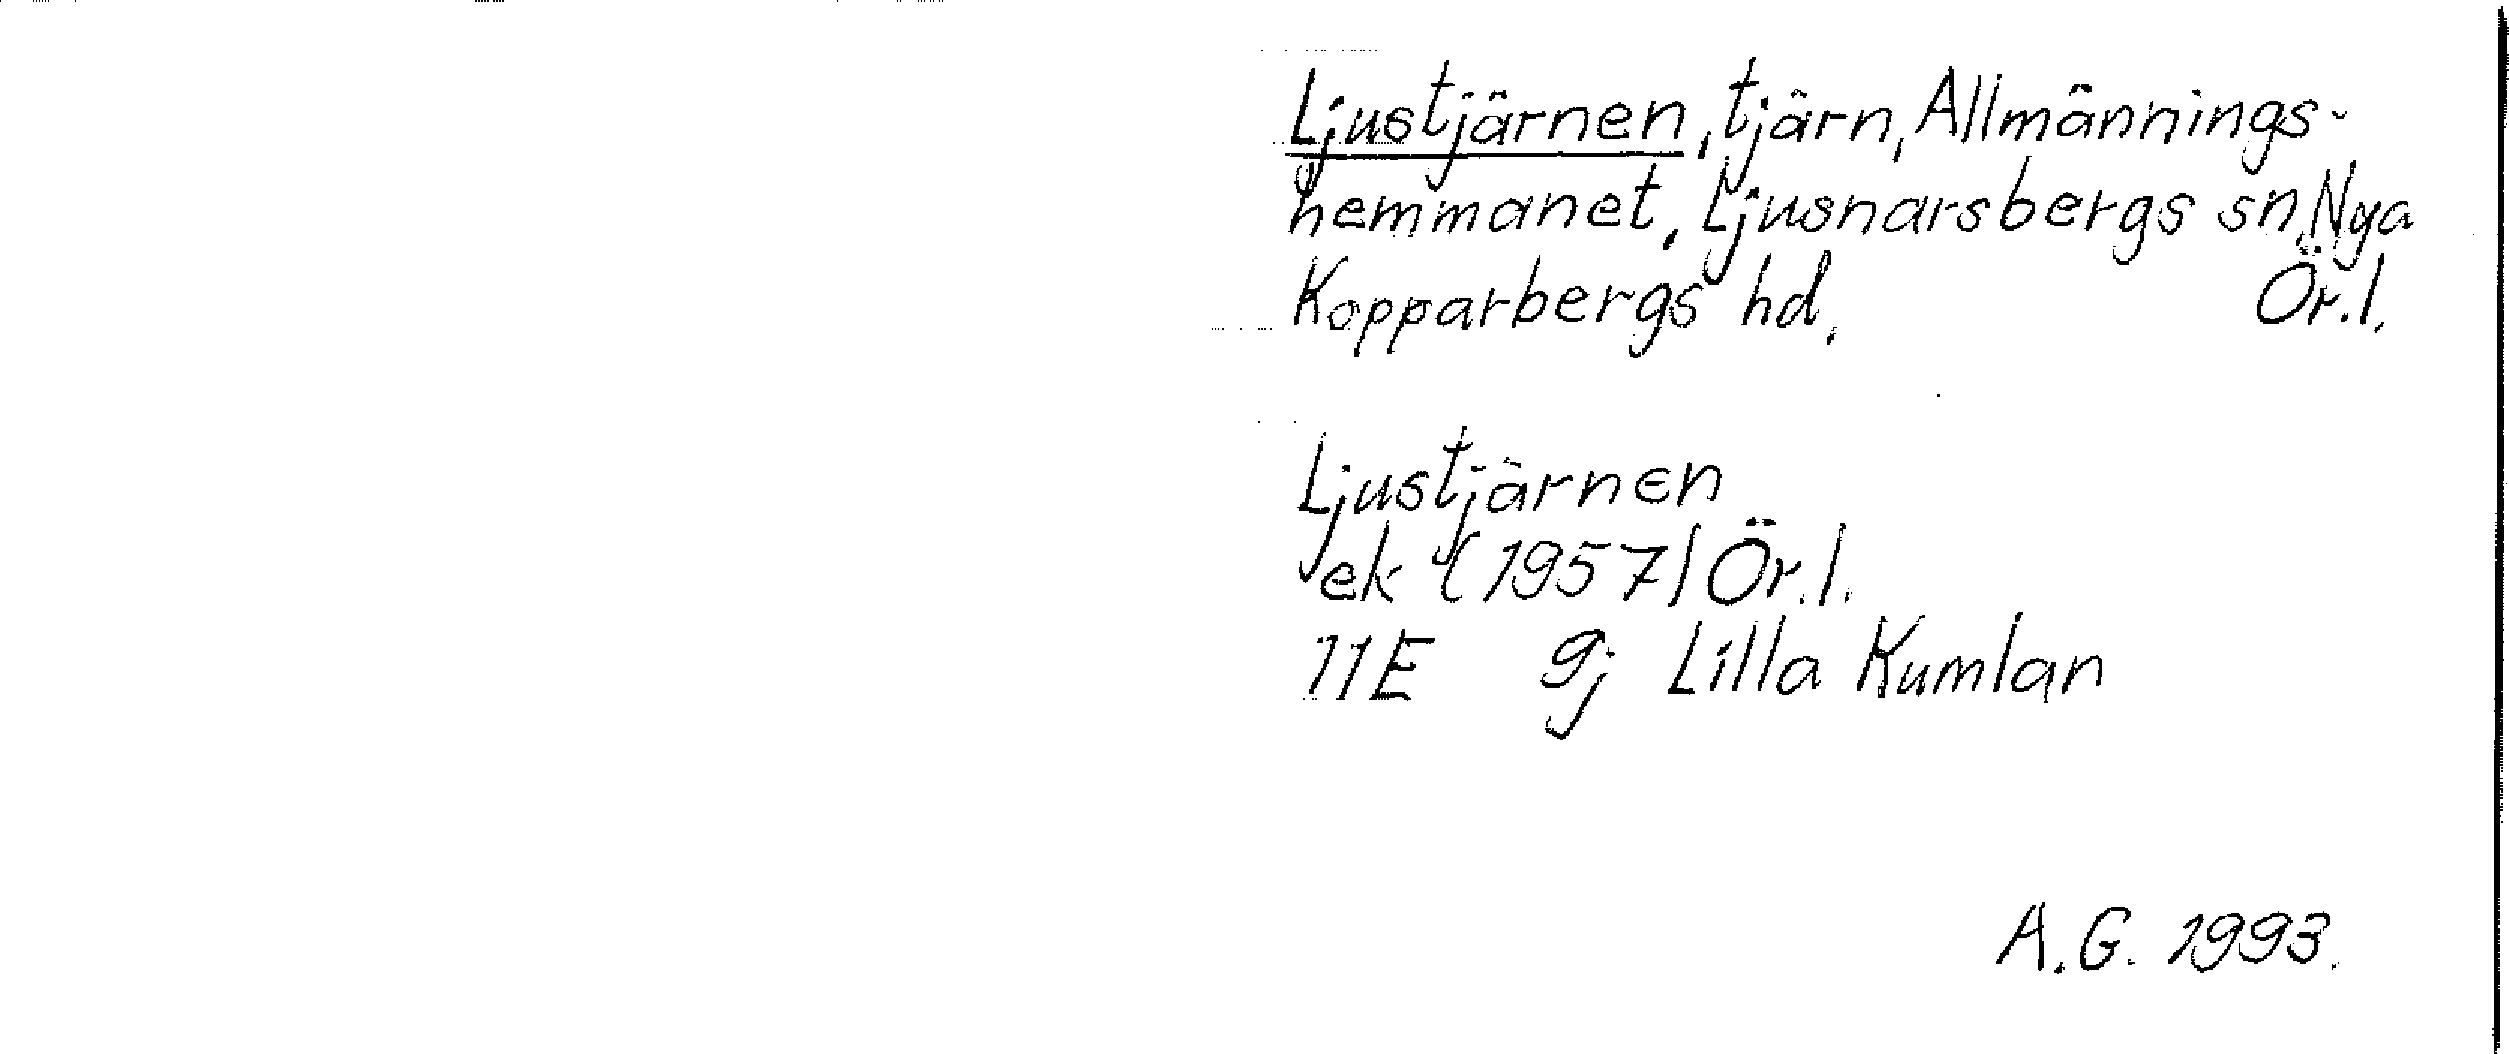 Ljustjärnen, tjärn, Allmännings-
hemmanet, Ljusnarsbergs sn, Nya
Kopparbergs hd, Ör.l.
Ljustjärnen
ek (1957) Ör.l.
11E 9j Lilla Kumlan
A.G. 1993.